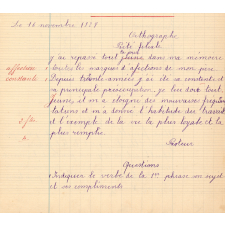 Le 18 novembre 1929
Orthographe
Piété filiale
J'ai repassé tout jeune dans ma mémoire
toutes les marques d'affections de mon père.
affection
constante
Depuis trente années j'ai été sa constante
et sa principale préoccupation. Je lui dois tout.
Jeune, il m'a éloigné des mauvaises fréquen
tations et m'a donné l'habitude du travail
2 fte
et l'exemple de la vie la plus loyale et la
plus remplie.
Pasteur
Questions
Indiquez le verbe de la 1re phrase son sujet
et ses compléments